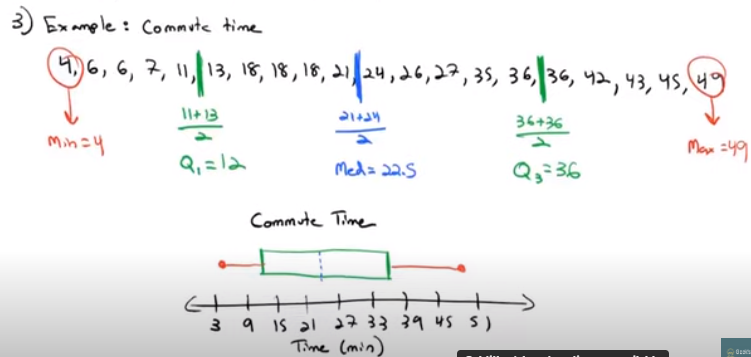 3) Example: Commute time
4, 6, 6, 7, 11, 13, 18, 18, 18, 21, 24, 26, 27, 35, 36, 36, 42, 43, 45, 49
11+13
2
21+24
2
36+36
2
Min=4
Q₁=12
Med=22.5
Q₃=36
Max=49
Commute Time
3 9 15 21 27 33 39 45 51
Time (min)